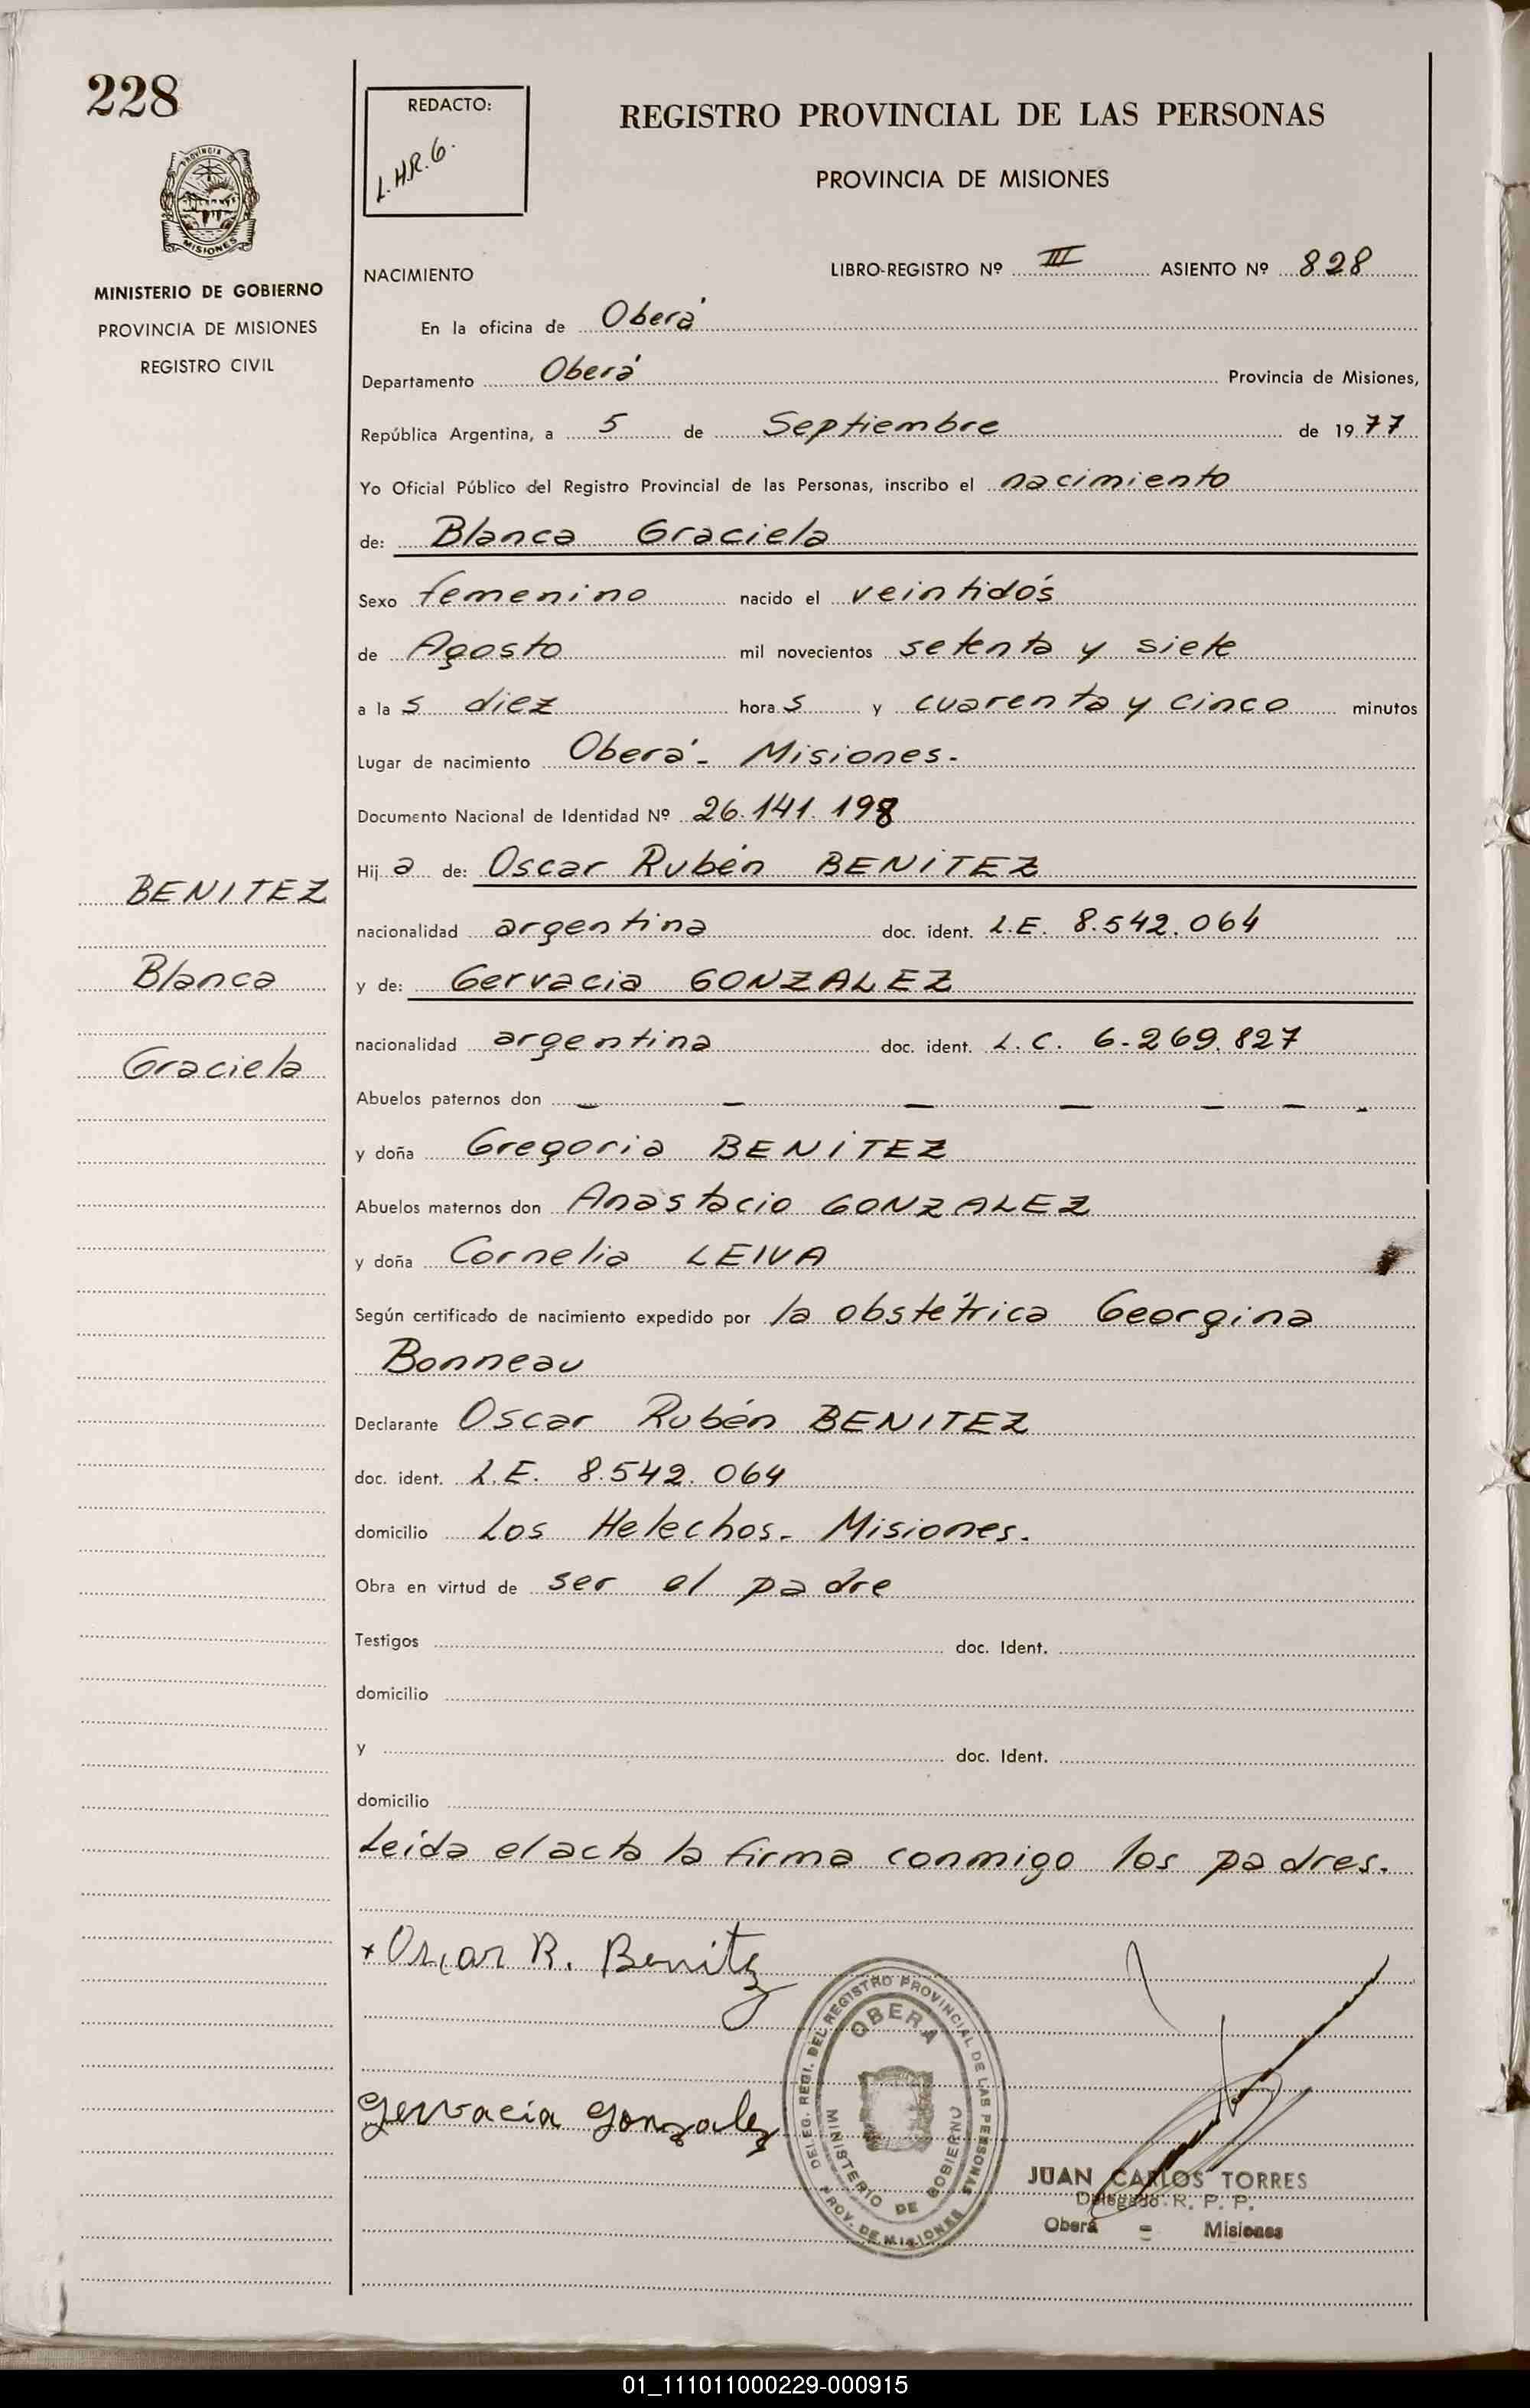 228
REDACTO:
L.H.R.G.
REGISTRO PROVINCIAL DE LAS PERSONAS
PROVINCIA DE MISIONES
PROVINCIA DE
MISIONES
MINISTERIO DE GOBIERNO
PROVINCIA DE MISIONES
REGISTRO CIVIL
NACIMIENTO LIBRO-REGISTRO Nº III ASIENTO Nº 828
En la oficina de Oberá
Departamento Oberá Provincia de Misiones,
República Argentina, a 5 de Septiembre de 1977
Yo Oficial Público del Registro Provincial de las Personas, inscribo el nacimiento
de: Blanca Graciela
Sexo femenino nacido el veintidós
de Agosto mil novecientos setenta y siete
a la s diez hora s y cuarenta y cinco minutos
Lugar de nacimiento Oberá - Misiones.
Documento Nacional de Identidad Nº 26.141.198
Hij a de: Oscar Rubén BENITEZ
BENITEZ
nacionalidad argentina doc. ident. L.E. 8.542.064
Blanca
y de: Gervacia GONZALEZ
nacionalidad argentina doc. ident. L.C. 6.269.827
Graciela
Abuelos paternos don — — — — — — -
y doña Gregoria BENITEZ
Abuelos maternos don Anastacio GONZALEZ
y doña Cornelia LEIVA
Según certificado de nacimiento expedido por la obstétrica Georgina
Bonneau
Declarante Oscar Rubén BENITEZ
doc. ident. L.E. 8.542.064
domicilio Los Helechos - Misiones.
Obra en virtud de ser el padre
Testigos doc. Ident.
domicilio
y doc. Ident.
domicilio
Leída el acta la firma conmigo los padres.
x Oscar R. Benitez
DELEG. REGI. DEL REGISTRO PROVINCIAL DE LAS PERSONAS
OBERA
MINISTERIO DE GOBIERNO
PROV. DE MISIONES
Gervacia Gonzalez
JUAN CARLOS TORRES
Delegado R. P. P.
Oberá - Misiones
01_111011000229-000915